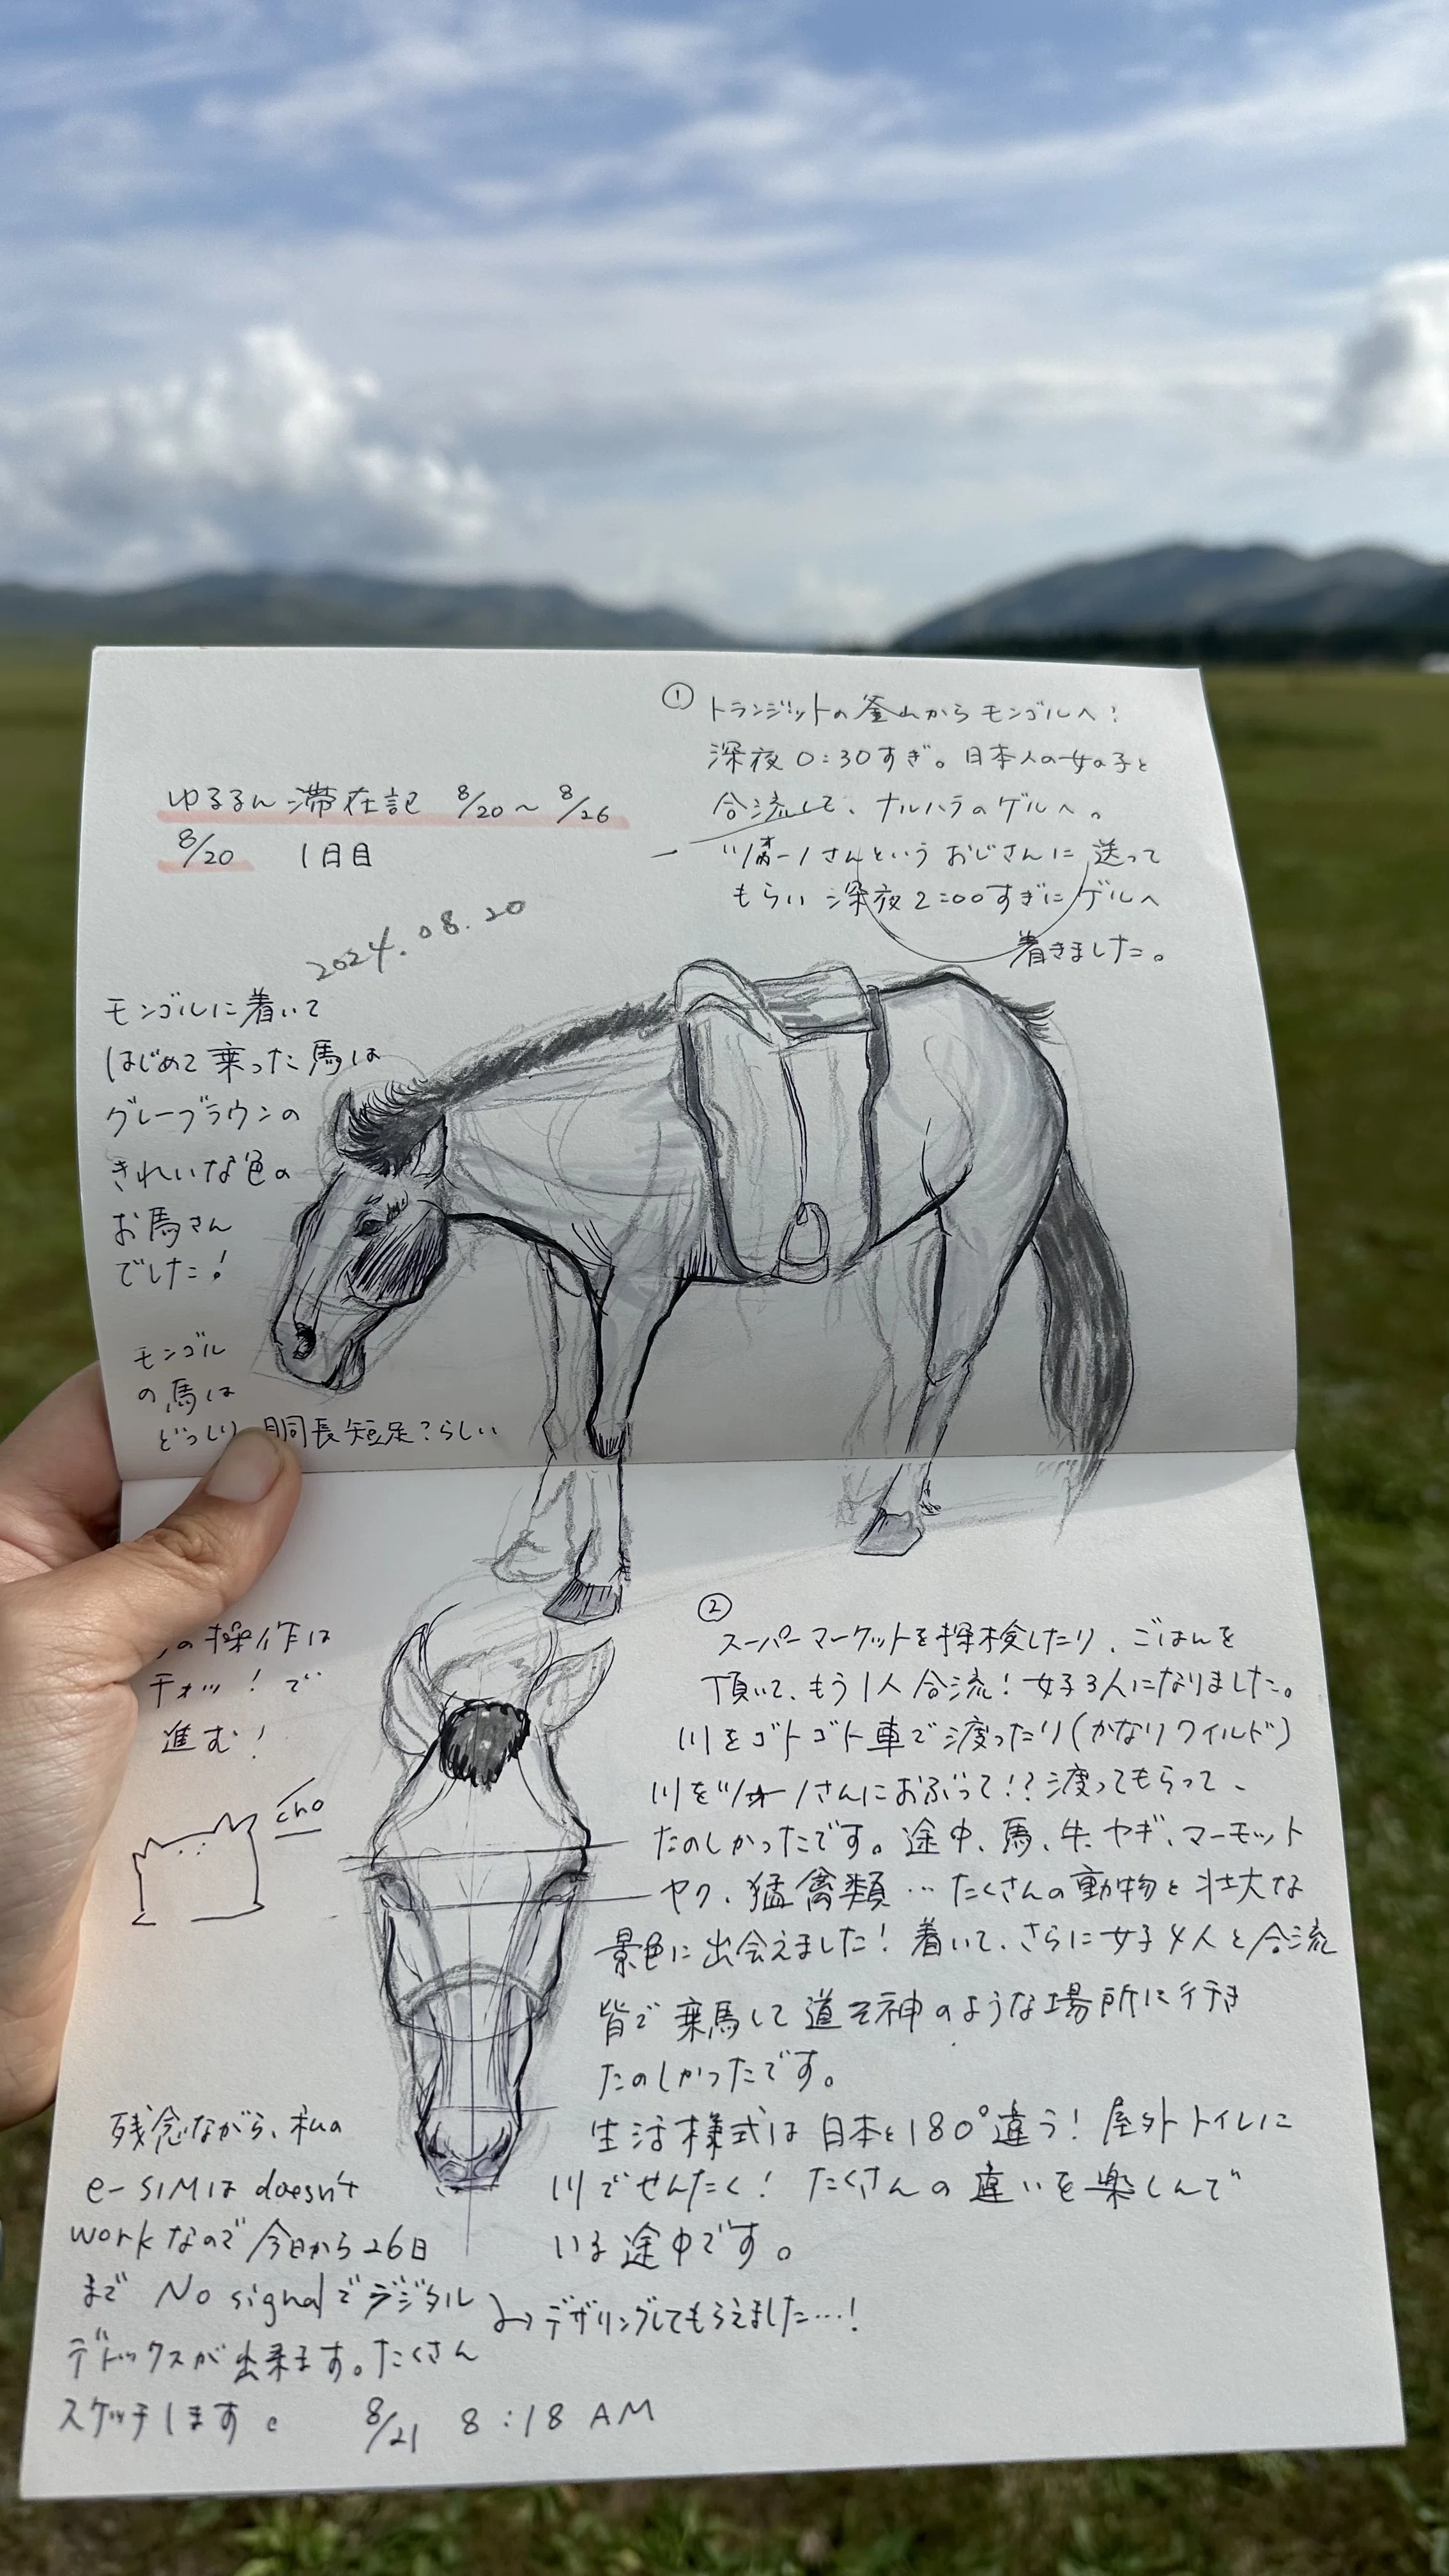 ゆるるん滞在記 8/20〜8/26
8/20 1日目
2024.08.20
モンゴルに着いて
はじめて乗った馬は
グレーブラウンの
きれいな色の
お馬さん
でした!
モンゴル
の馬は
どっしり 胴長短足?らしい
① トランジットの釜山からモンゴルへ!
深夜0:30すぎ。日本人の女の子と
合流して、ナルハラのゲルへ。
さんというおじさんに送って
もらい深夜2:00すぎにゲルへ
着きました。
の操作は
チョッ!で
進む!
cho
②
スーパーマーケットを探検したり、ごはんを
頂いて、もう1人合流!女子3人になりました。
川をゴトゴト車で渡ったり(かなりワイルド)
川を さんにおぶって!?渡ってもらって、
たのしかったです。途中、馬、牛、ヤギ、マーモット
ヤク、猛禽類…たくさんの動物と壮大な
景色に出会えました!着いて、さらに女子4人と合流
皆で乗馬して道祖神のような場所に行き
たのしかったです。
生活様式は日本と180°違う!屋外トイレに
川でせんたく!たくさんの違いを楽しんで
いる途中です。
残念ながら、私の
e-SIMは doesn't
workなので今日から26日
まで No signalでデジタル
デトックスが出来ます。たくさん
スケッチします。
→デザリングしてもらえました…!
8/21 8:18 AM